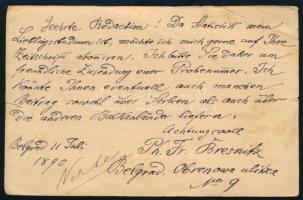 Geehrte Redaction! Da Statistik mein
Lieblingsstudium ist, möchte ich mich gerne auf Ihre
Zeitschrift aboniren. Ich bitte Sie daher um
freundliche Zusendung einer Probenumer. Ich
könnte Ihnen eventuell auch manchen
Beitrag sowohl über Serbien als auch über
die anderen Balkanländer liefern.
Achtungsvoll
Belgrad 11 Juli
Ph. Fr. Bresnitz
1890
Belgrad. Obrenova ulizza
No 9